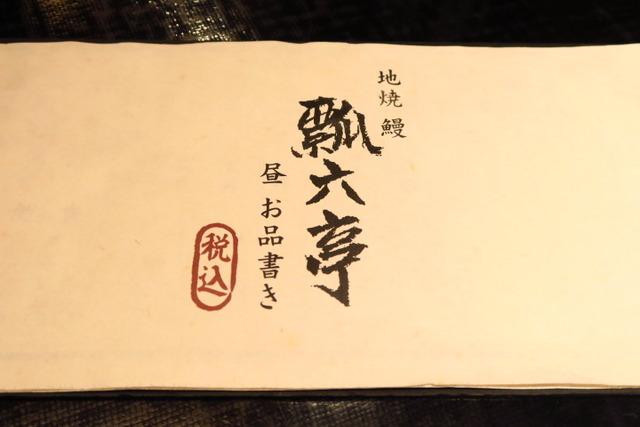 地焼 鰻
瓢六亭
昼 お品書き
税込